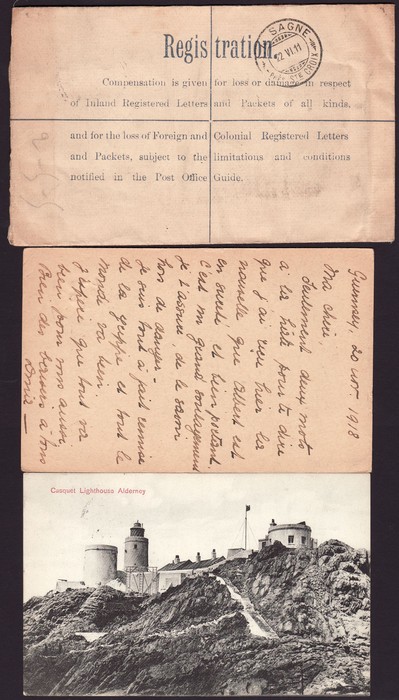 Registration.
SAGNE
12 VI.11
STE CROIX
Compensation is given for loss or damage in respect
of Inland Registered Letters and Packets of all kinds,
and for the loss of Foreign and Colonial Registered Letters
and Packets, subject to the limitations and conditions
notified in the Post Office Guide.
Guernsey, 20 nov. 1918
Ma chérie,
Seulement deux mots
à la hâte pour te dire
que j'ai reçu hier la
nouvelle que Albert est
en sureté et bien portant.
C'est un grand soulagement
je t'assure, de le savoir
hors de danger -
Je suis tout à fait remise
de la grippe et tout le
monde va bien.
J'espère que tout va
bien pour vous aussi,
Bien des baisers à tous
Casquet Lighthouse Alderney